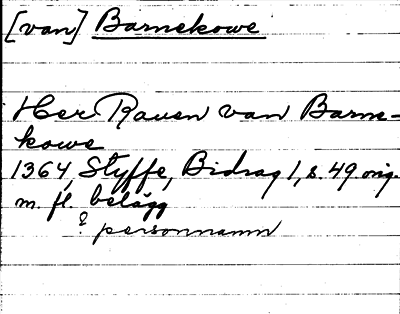 [van] Barnekowe
Her Rauen van Barne-
kowe
1364, Styffe, Bidrag 1, s. 49 orig.
m. fl. belägg
? personnamn